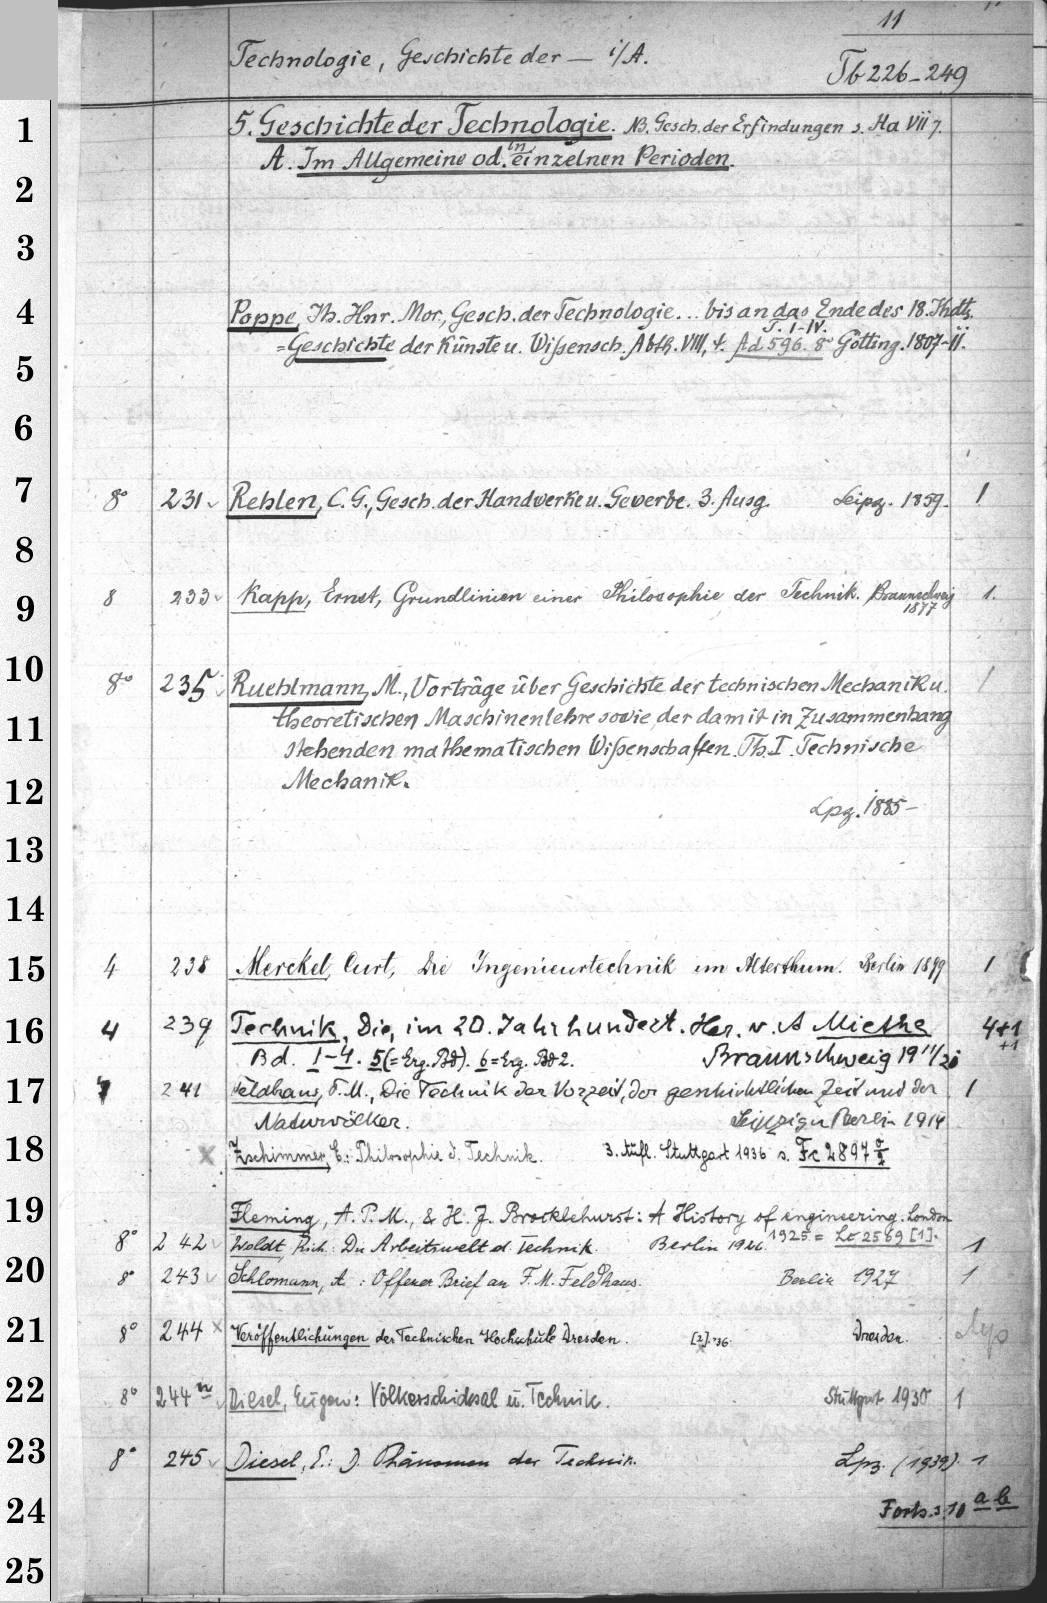 11
Technologie, Geschichte der — i/A.
Tb 226-249
1
5. Geschichte der Technologie. NB. Gesch. der Erfindungen s. Ha VII 7.
A. Im Allgemeine od. in einzelnen Perioden.
2
3
4
Poppe, Jh. Hnr. Mor., Gesch. der Technologie... bis an das Ende des 18. Jhdts.
=Geschichte der Künste u. Wißensch. Abth. VIII, 4. Ad 596. 8° Götting. 1807-11.
J. I-IV.
5
6
7
8° 231 Rehlen, C. G., Gesch. der Handwerke u. Gewerbe. 3. Ausg. Leipz. 1859. 1
8
9
8 233 Kapp, Ernst, Grundlinien einer Philosophie der Technik. Braunschweig 1877 1.
10
8° 235 Ruehlmann, M., Vorträge über Geschichte der technischen Mechanik u. 1
11
theoretischen Maschinenlehre sowie der damit in Zusammenhang
stehenden mathematischen Wißenschaften. Th. I. Technische
12
Mechanik.
Lpz. 1885-
13
14
15
4 238 Merckel, Curt, Die Ingenieurtechnik im Alterthum. Berlin 1899 1
16
4 239 Technik, Die, im 20. Jahrhundert. Her. v. A Miethe 4+1
+1
Bd. 1-4. 5(=Erg. Bd). 6=Erg. Bd 2. Braunschweig 1911/20
17
4 241 Feldhaus, F. M., Die Technik der Vorzeit, der geschichtlichen Zeit und der 1
Naturvölker. Leipzig u Berlin 1914
18
x Zschimmer, E.: Philosophie d. Technik. 3. Aufl. Stuttgart 1936 s. Fc 2897
19
Fleming, A. P. M., & H. J. Brocklehurst: A History of engineering. London
1925 = Lc 2569 [1].
8° 242 Woldt, Rich: Die Arbeitswelt d. Technik. Berlin 1926. 1
20
8° 243 Schlomann, A: Offener Brief an F. M. Feldhaus. Berlin 1927 1
21
8° 244 x Veröffentlichungen der Technischen Hochschule Dresden. [2]. '36. Dresden.
22
8° 244 n Diesel, Eugen: Völkerschicksal u. Technik. Stuttgart 1930 1
23
8° 245 Diesel, E.: D. Phänomen der Technik. Lpz. (1939). 1
24
Forts. s. 10 a b
25